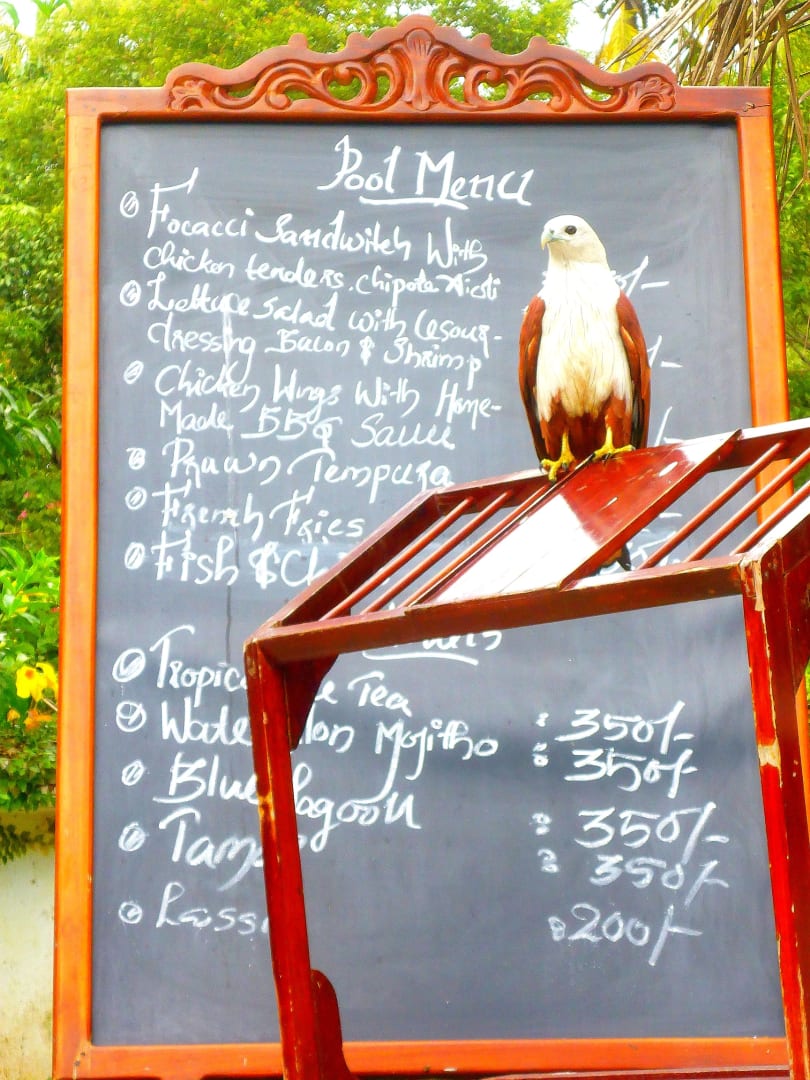 Pool Menu
Focacci Sandwitch With
chicken tenders. chipote Aioli
Lettuce salad with
dressing Bacon & Shrimp
Chicken Wings With Home-
Made BBQ Sauce
Prawn Tempura
French Fries
Fish &
Tea
Mojitho : 350/-
: 350/-
Blue Lagoon : 350/-
: 350/-
Lassi : 200/-